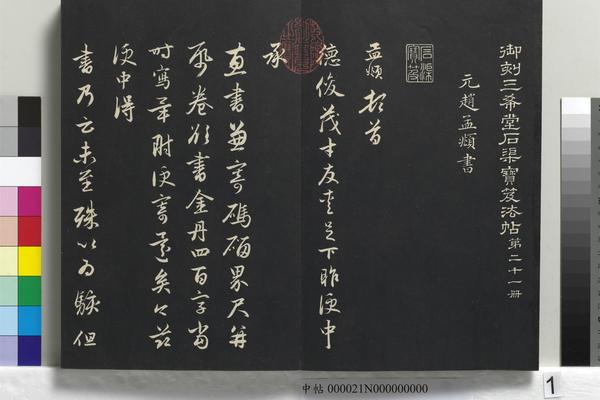 御刻三希堂石渠寶笈法帖第二十一冊
元趙孟頫書
石渠寶笈
孟頫頓首
德俊茂才友愛足下昨便中
承
惠書兼寄碼碯界尺并
紙卷欲書金丹四百字當
時寫畢附便寄還矣茲
便中得
書乃云未至殊以為駭但
中帖 000021N000000000
1